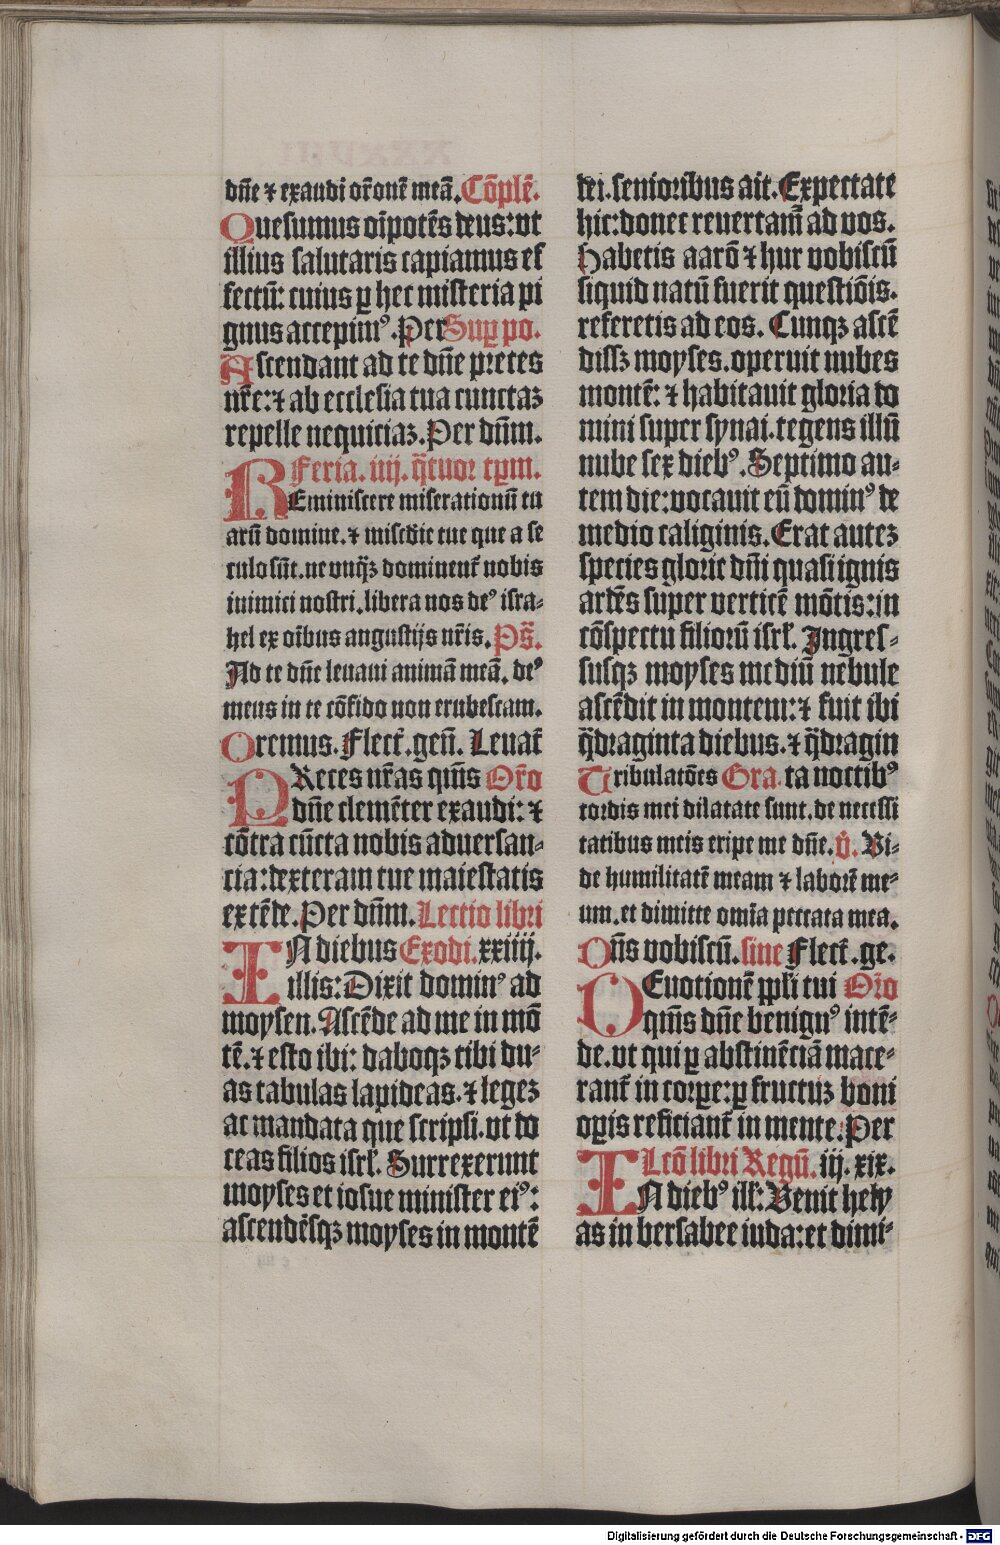 dn̄e ⁊ exaudi or̄onē meā. Cōplē.
Quesumus oīpotēs deus: vt
illius salutaris capiamus ef
fectū: cuius ꝑ hec misteria pi
gnus accepimꝰ. Per Suꝑ po.
Ascendant ad te dn̄e preces
nr̄e: ⁊ ab ecclesia tua cunctaꝫ
repelle nequiciaꝫ. Per dn̄m.
Feria. iiij. q̄tuor tꝑm.
REminiscere miserationū tu
arū domine. ⁊ miscd̄ie tue que a se
culo sūt. ne vnq̄ꝫ dominent᷑ nobis
inimici nostri. libera nos deꝰ isra-
hel ex oībus angustijs nr̄is. Ps̄.
Ad te dn̄e leuaui animā meā. deꝰ
meus in te cōfido non erubescam.
Oremus. Flect᷑. genꝰ. Leuat᷑
PReces nr̄as qm̄s Or̄o
dn̄e clemēter exaudi: ⁊
cōtra cūcta nobis aduersan-
cia: dexteram tue maiestatis
extēde. Per dn̄m. Lectio libri
IN diebus Exodi. xxiiij.
illis: Dixit dominꝰ ad
moysen. Ascēde ad me in mō
tē. ⁊ esto ibi: daboqꝫ tibi du-
as tabulas lapideas. ⁊ legeꝫ
ac mandata que scripsi. vt do
ceas filios isrł. Surrexerunt
moyses et iosue minister eiꝰ:
ascendēsqꝫ moyses in montē
dei. senioribus ait. Expectate
hic: donec reuertam̄ ad vos.
Habetis aarō ⁊ hur vobiscū
siquid natū fuerit questiōis.
referetis ad eos. Cunqꝫ ascē
dissꝫ moyses. operuit nubes
montē: ⁊ habitauit gloria do
mini super synai. tegens illū
nube sex diebꝰ. Septimo au-
tem die: vocauit eū dominꝰ de
medio caliginis. Erat auteꝫ
species glorie dn̄i quasi ignis
ardēs super verticē mōtis: in
cōspectu filiorū isrł. Ingres-
susqꝫ moyses mediū nebule
ascēdit in montem: ⁊ fuit ibi
q̄draginta diebus. ⁊ q̄dragin
Tribulatōes Gra. ta noctibꝰ
cordis mei dilatate sunt. de necessi
tatibus meis eripe me dn̄e. v̄. Vi-
de humilitatē meam ⁊ laborē me-
um. et dimitte omīa peccata mea.
Dn̄s vobiscū. sine Flect᷑. ge.
DEuotionē ppłi tui Or̄o
qm̄s dn̄e benignꝰ intē-
de. vt qui ꝑ abstinēciā mace-
rant᷑ in corꝑe: ꝑ fructuꝫ boni
oꝑis reficiant᷑ in mente. Per
Lcō libri Regū. iij. xix.
IN diebꝰ ill᷑: Venit hely
as in bersabee iuda: et dimi-
Digitalisierung gefördert durch die Deutsche Forschungsgemeinschaft - DFG